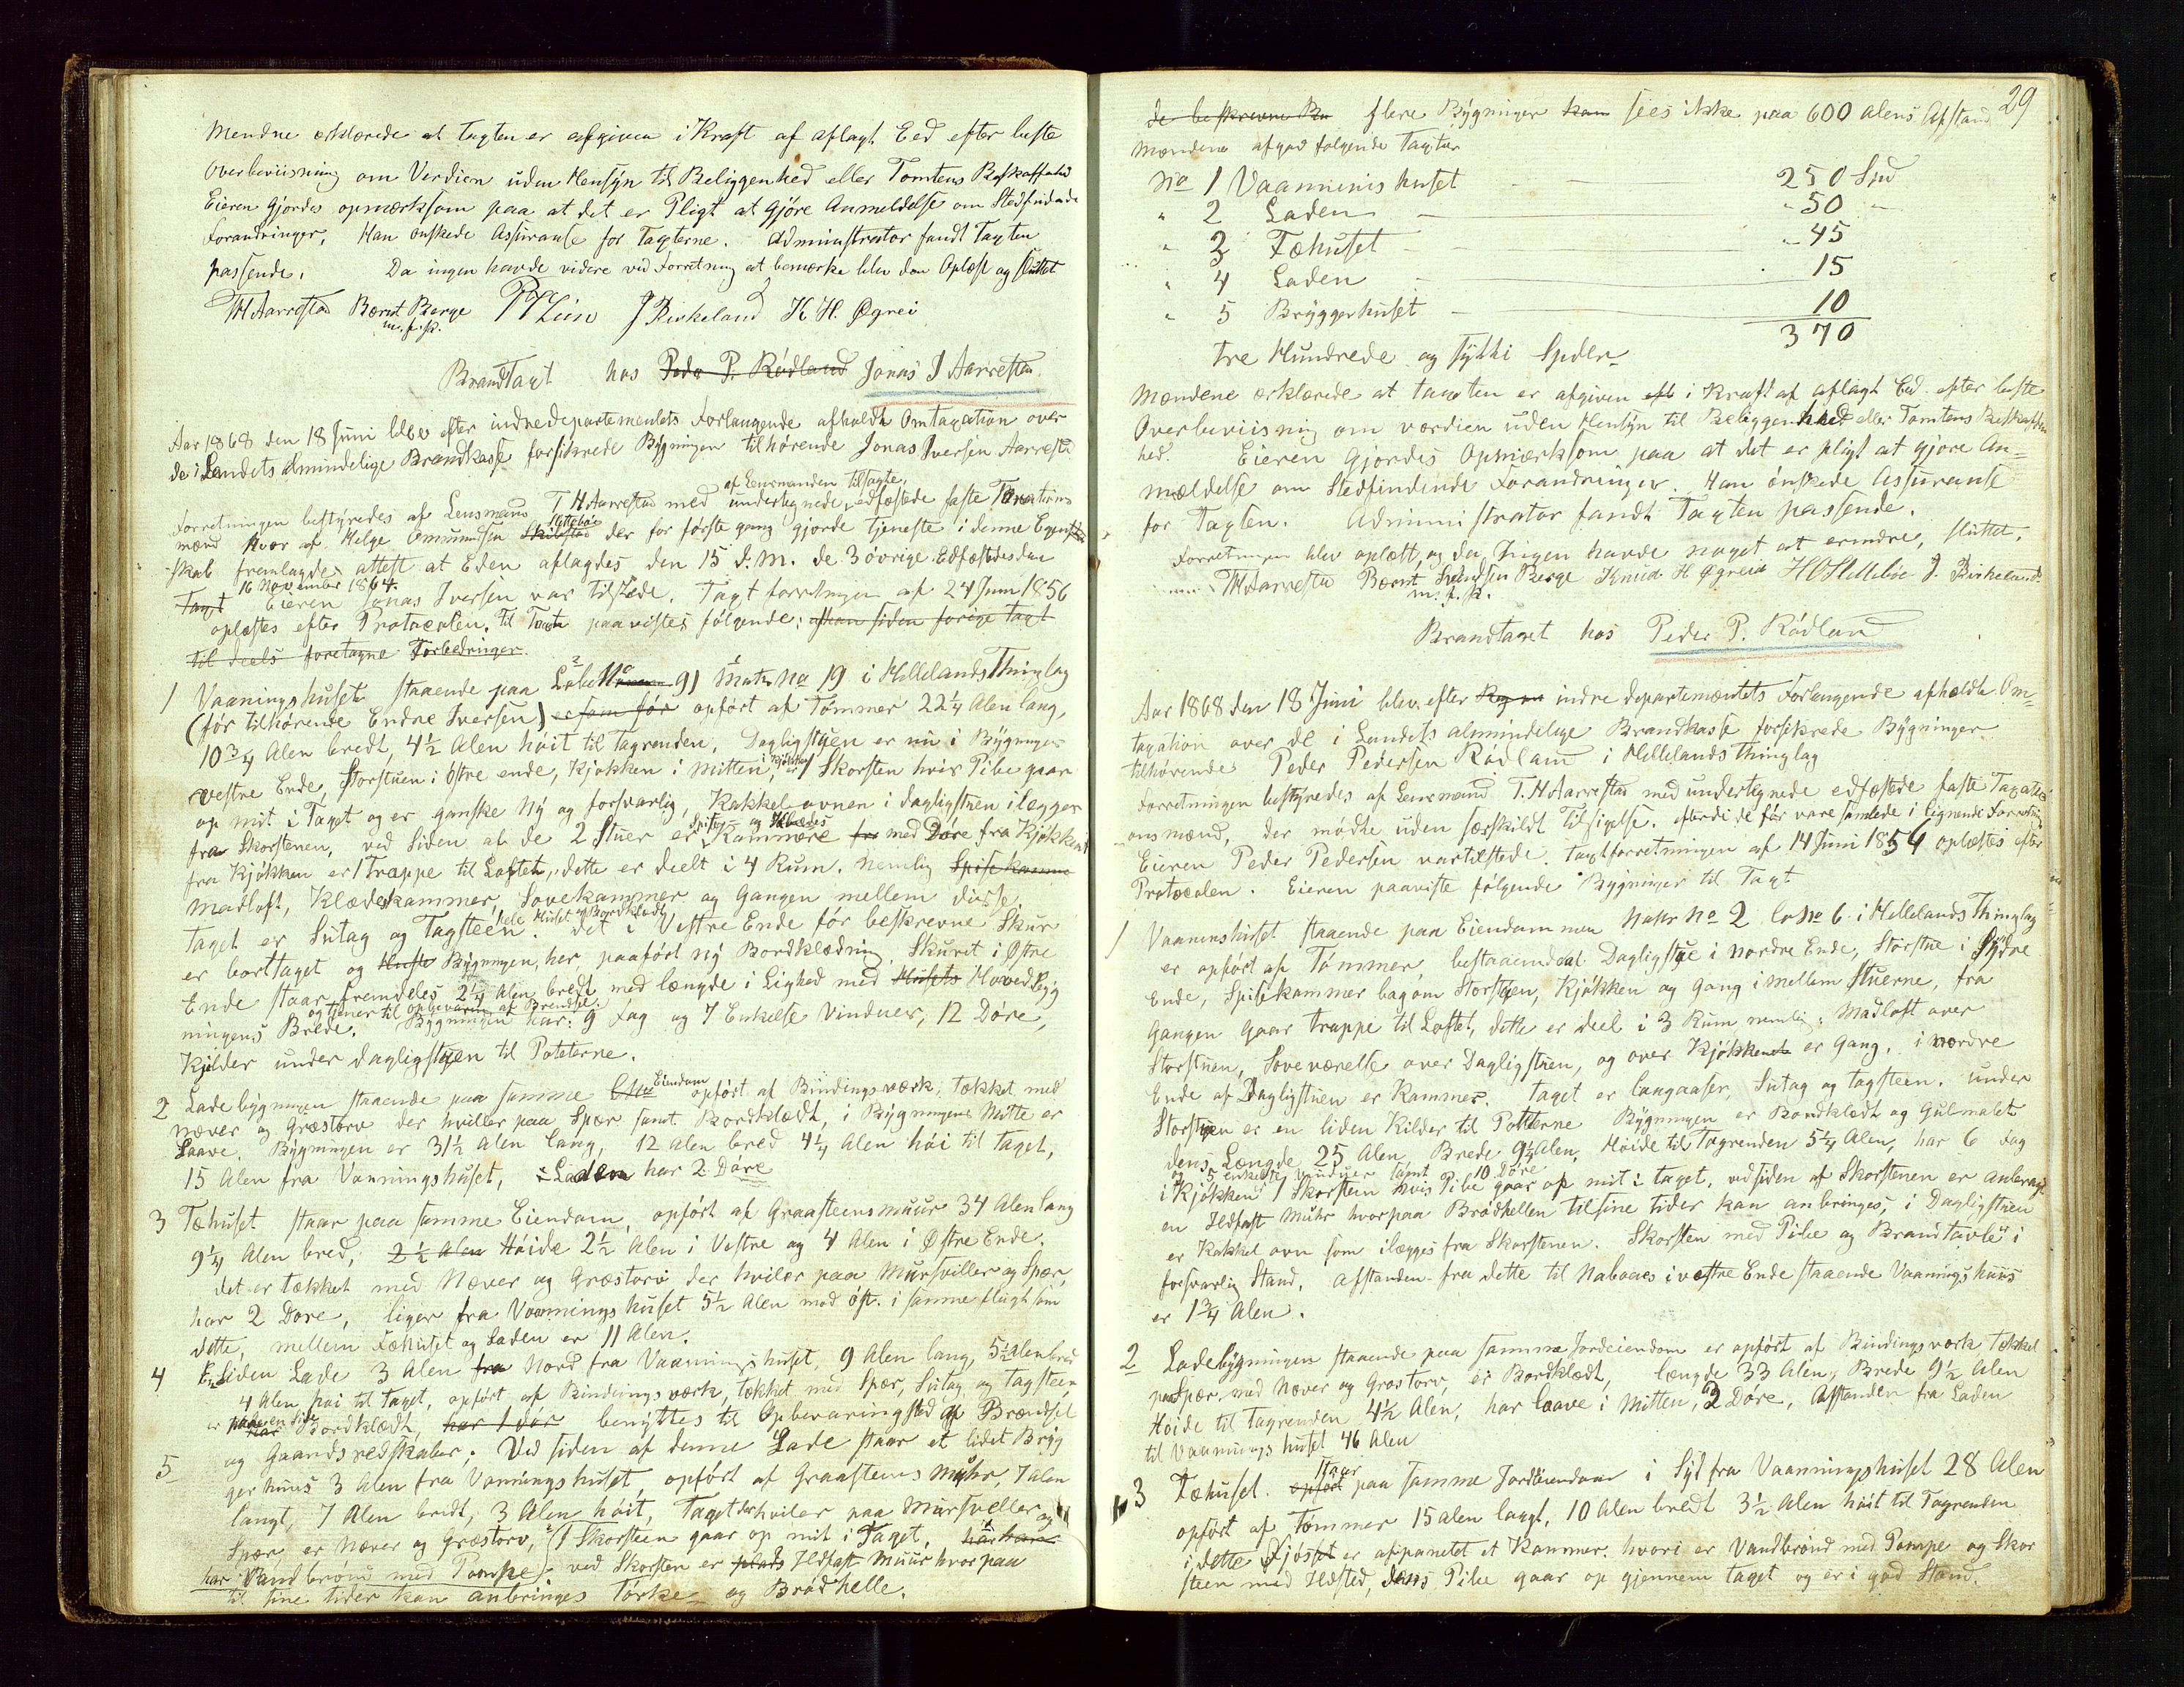 Mendne erklærede at Taxten er afgiven i Kraft af aflagt Eed efter beste
Overbeviisning om Verdien uden Hensyn til Beliggenhed eller Tomtens Beskaffenhed
Eieren gjordes opmærksom paa at det er Pligt at gjöre Anmeldelse om Stedfindende
Forandringer, Han önskede Assuranse for Taxterne. Administrator fandt Taxten
passende. Da ingen havde videre ved Forretning at bemærke blev den Oplæst og sluttet
TH Aarrestad Bærnt Berge J Birkeland K H. Øgrei
m. f. P.
Brandtaxt hos Peder P. Rödland Jonas J Aarrestad
Aar 1868 den 18 Juni blev efter indredepartementets Forlangende afholdt Omtaxation over
de i Landets almindelige Brandkasse forsikrede Bygninger tilhörende Jonas Iversen Aarrestad
af Lensmanden tilsagte,
Forretningen bestyredes af Lensmand T H Aarrestad med undertegnede, edfæstede faste Taxations
mænd hvor af Helge Omundsen Skibstad Hetteböe der for förste gang gjorde tjeneste i denne Egen
skab fremlagde attest at Eden aflagdes den 15 d. M. de 3 övrige Edfæstedes den
16 November 1864.
Taxt Eieren Jonas Iversen var tilstede. Taxt forretningen af 24 Juni 1856
oplæstes efter Protocolen. Til Taxt paavistes fölgende: afhan siden forige Taxt
til deels foretagne Forbedringer.
1 Vaaningshuset staaende paa Löbe No 91 Matr No 19 i Hellelands Thinglag
(för tilhörende Endre Iversen) er som för opfört af Tömmer 22 1/4 Alen lang,
10 3/4 Alen bredt, 4 1/2 Alen höit til tagrenden. Dagligstuen er nu i Bygningens
vestre Ende, Storstuen i östre ende, Kjökken i Mitten, i Kjökken er 1 Skorsten hvis Pibe gaar
op mit i Taget og er ganske Ny og forsvarlig, Kakkelovnen i dagligstuen ilegges
fra Skorstenen, ved Siden af de 2 Stuer er Spise- og Klædes Kammere fra med Döre fra Kjökkenet
fra Kjökken er 1 Trappe til Loftet, dette er deelt i 4 Rum. Nemlig Spise kammer
Madloft, Klædeskammer, Sovekammer og Gangen mellem disse.
Taget er Sutag og Tagsteen. hele Huset er Bordklædt det i Vestre Ende för beskrevne Skur
er borttaget og Huset Bygningen, her paafört ny Bordklædning. Skuret i Østre
Ende staar fremdeles 2 1/4 Alen bredt med længde i Lighed med Husets Hovedbyg
ningens Brede. og tjener til opbevaring af Brendsel. Bygningen har: 9 fag og 7 Enkelte Vinduer, 12 Döre,
Kjelder under dagligstuen til Poteterne.
2 Ladebygningen staaende paa samme Eiendom opfört af Bindingsværk, tækket med
næver og Græstörv der hviller paa Spær samt Bordklædt, i Bygningens Mitte er
Laave. Bygningen er 31 1/2 Alen lang, 12 Alen bred 4 1/4 Alen höi til taget,
15 Alen fra Vaaningshuset, Laden har 2 Döre
3 Fæhuset staar paa samme Eiendom, opfört af Graasteensmuur 34 Alen lang
9 1/4 Alen bred, 2 1/2 Alen Höide 2 1/2 Alen i Vestre og 4 Alen i Østre Ende.
det er tækket med Næver og Græstorv der hviler paa Mursviller og Spær,
har 2 Döre, liger fra Vaaningshuset 5 1/2 Alen mod öst. i samme flugt som
dette, mellem Fæhuset og Laden er 11 Alen.
4 En liden Lade 3 Alen fra Nord fra Vaaningshuset, 9 Alen lang, 5 1/2 Alen bred
4 Alen höi til taget, opfört af Bindingsværk, tækket med Spær, Sutag og Tagsteen
er paa en Side Bordklædt, har 1 dör benyttes til Opbevaringsted af Brændsel
og Gaardsredskaber; Ved siden af denne Lade staar et lidet Bryg
5 gerhuus 3 Alen fra Vaaningshuset, opfört af Graasteens Muhr, 7 alen
langt, 7 Alen bredt, 3 Alen höit, Taget der hviler paa Mursveller og
Spær, er Næver og Græstorv, (1 Skorsteen gaar op mit i Taget. har
har Vandbrönd med Pompe) ved Skorsten er plads Ildfast Muur hvor paa
til sine tider kan anbringes Törke- og Brödhelle.
29
de beskrevne flere Bygninger kan sees ikke paa 600 Alens Afstand
Mændene afgav fölgende Taxter
No 1 Vaanninshuset 250 Spd
" 2 Laden 50
" 3 Fæhuset 45
" 4 Laden 15
" 5 Bryggerhuset 10
370
tre Hundrede og sytti Spdler
Mændene erklærede at taxten er afgiven eft i Kraft af aflagt Eed efter beste
Overbeviisning om værdien uden Hensyn til Beliggenhed eller Tomtens Beskaffen
hed. Eieren gjordes Opmærksom paa at det er pligt at gjöre An=
mældelse om Stedfindende Forandringer. Han önskede Assuranse
for Taxten. Administrator fandt Taxten passende.
Forretningen blev oplæstt, og da Ingen havde noget at erindre, sluttet.
TH Aarrestad Bærnt Svendsen Berge Knud H Øgreid HO Hetteböe J. Birkeland.
m. f. P.
Brandtaxt hos Peder P. Rödland
Aar 1868 den 18 Juni blev efter indre departementets Forlangende afholdt Om=
taxation over de i Landets almindelige Brandkasse forsikrede Bygninger
tilhörende Peder Pedersen Rödland i Hellelands Thinglag
Forretningen bestyredes af Lensmand T. H Aarrestad med undertegnede edfæstede faste Taxati
onsmænd, der mödte uden særskildt Tilsigelse. efterdi de för vare samlede i lignende Forretning
Eieren Peder Pedersen var tilstede. Taxtforretningen af 14 Juni 1854 oplæstes efter
Protocolen. Eieren paaviste fölgende Bygninger til Taxt
1 Vaaninshuset staaende paa Eiendommen Matr No 2 Lo No 6 i Hellelands Thinglag
er opfört af Tömmer, bestaaende af Dagligstue i nordre Ende, Storstue i Sydre
Ende, Spisekammer bagom Storstuen, Kjökken og Gang imellem Stuerne, fra
Gangen gaar trappe til Loftet, dette er deel i 3 Rum nemlig: Madloft over
Storstuen, Soveværelse over Dagligstuen, og over Kjökkenet er Gang, i nordre
Ende af Dagligstuen er Kammer. Taget er langaaser, Sutag og tagsteen. under
Storstuen er en liden Kilder til Potterne Bygningen er Bordklædt og Gulmalet
dens Længde 25 Alen Brede 9 1/2 Alen, Höide til Tagrenden 5 1/4 Alen, har 6 fag
og 5 enkelte vinduer samt 10 Döre
i Kjökken 1 Skorsteen hvis Pibe gaar op mit i taget. ved siden af Skorstenen er anbragt
en Ildfast Muhr hvorpaa Brödhellen til sine tider kan anbringes, i Dagligstuen
er Kakkel ovn som ilægges fra Skorstenen. Skorsten med Pibe og Brandtavle i
forsvarlig Stand, afstanden fra dette til Naboens i vestre Ende staaende Vaaningshuus
er 1 3/4 Alen.
2 Ladebygningen staaende paa samme Jordeiendom er opfört af Bindingsværk tækket
paa Spær med Næver og Græstorv, er Bordklædt, længde 33 Alen, Brede 9 1/2 Alen
Höide til Tagrenden 4 1/2 Alen, har laave i Mitten, 2 Döre, Afstanden fra Laden
til Vaanings huset 46 Alen
3 Fæhuset. opfört staar paa samme Jordeiendom i Syd fra Vaanningshuset 28 Alen
opfört af Tömmer 15 Alen langt, 10 Alen bredt 3 1/2 Alen höit til Tagrenden
i dette Fjöset er afpanelet et Kammer. hvori er Vandbrönd med Pompe og Skor
steen med Ildsted, dens Pibe gaar op gjennem taget og er i god Stand.